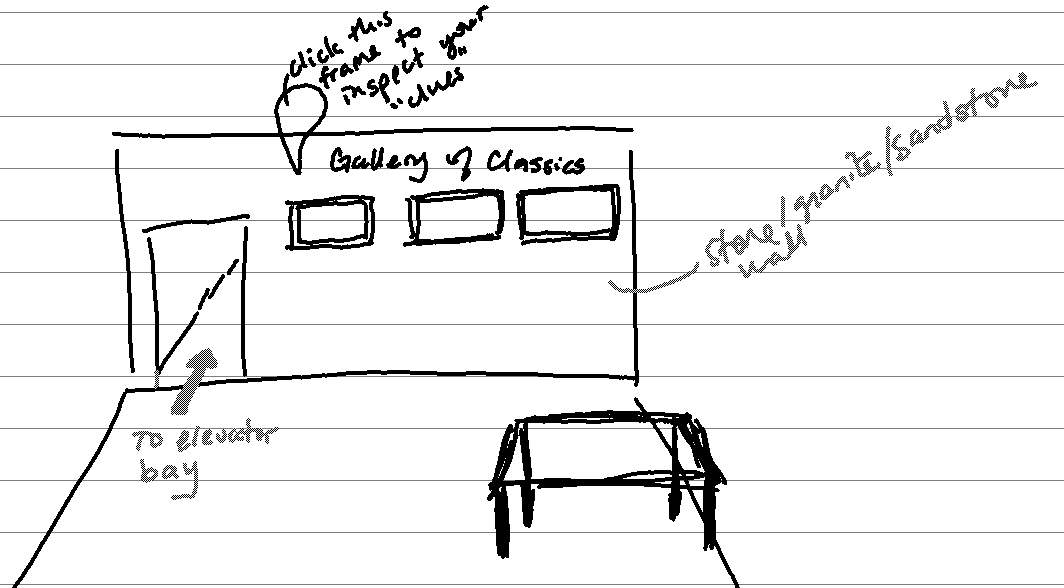 click this
frame to
inspect your
"clues"
Gallery of Classics
stone/granite/sandstone
wall
To elevator
bay